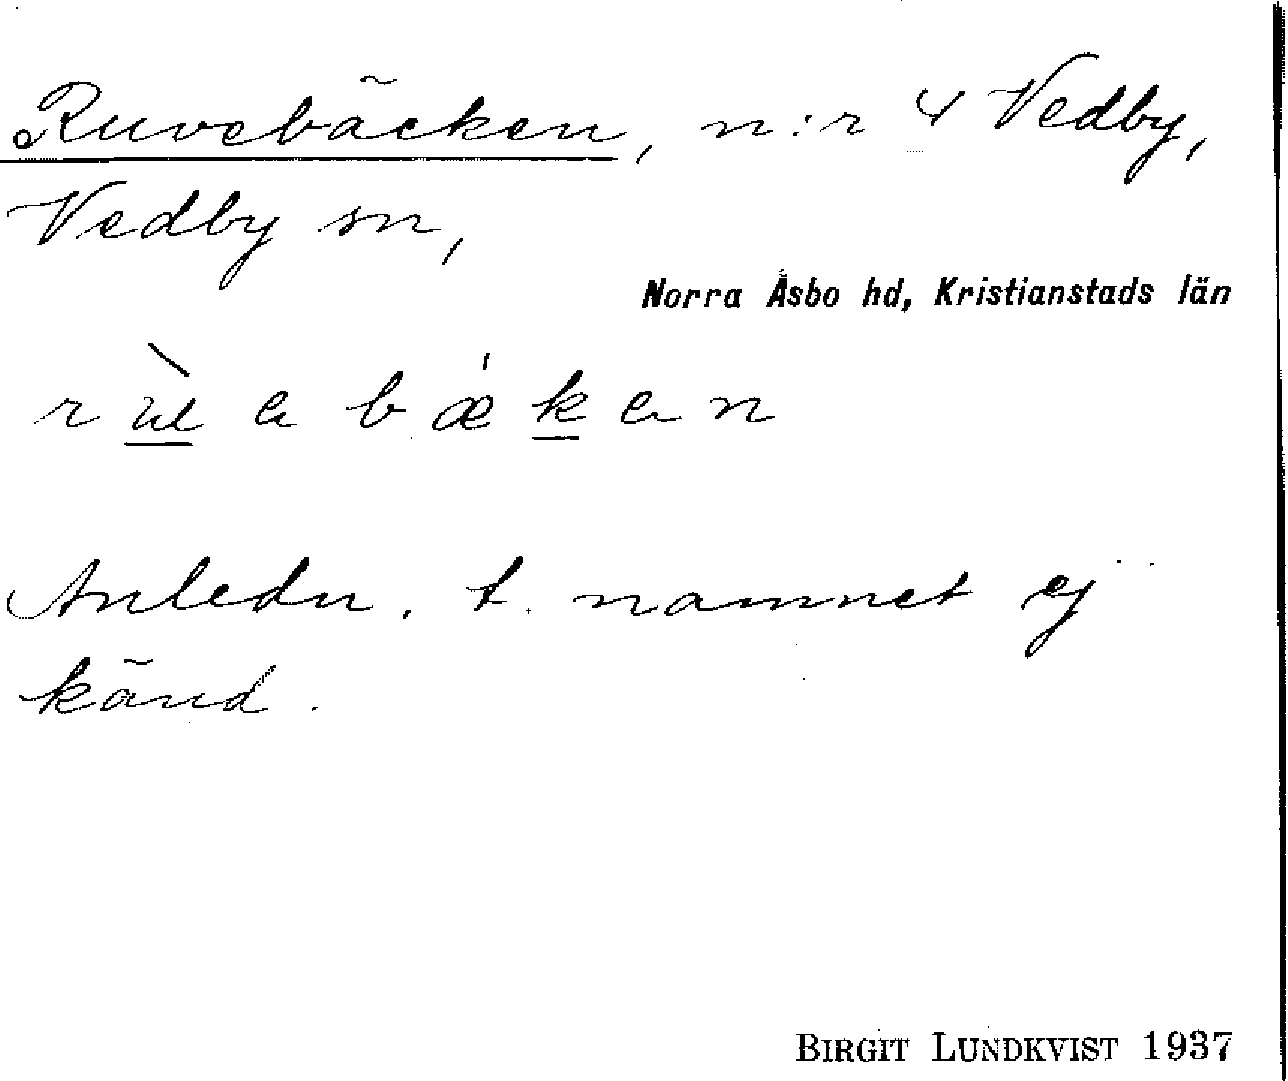 Ruvebäcken, n:r 4 Vedby,
Vedby sn,
Norra Åsbo hd, Kristianstads län
Anledn. t. namnet ej
känd.
BIRGIT LUNDKVIST 1937